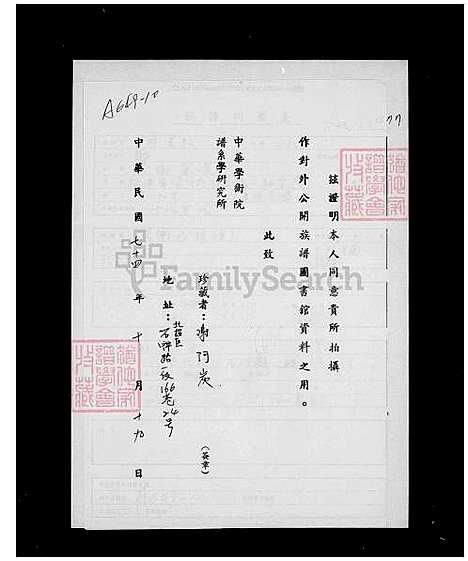 A689-10
77
茲證明本人同意貴所拍攝
作對外公開族譜圖書館資料之用。
此致
中華學術院
譜系學研究所
珍藏者：謝阿炭
(簽章)
地址：北投區石牌路一段166巷24号
中華民國七十四年十月十九日
FamilySearch